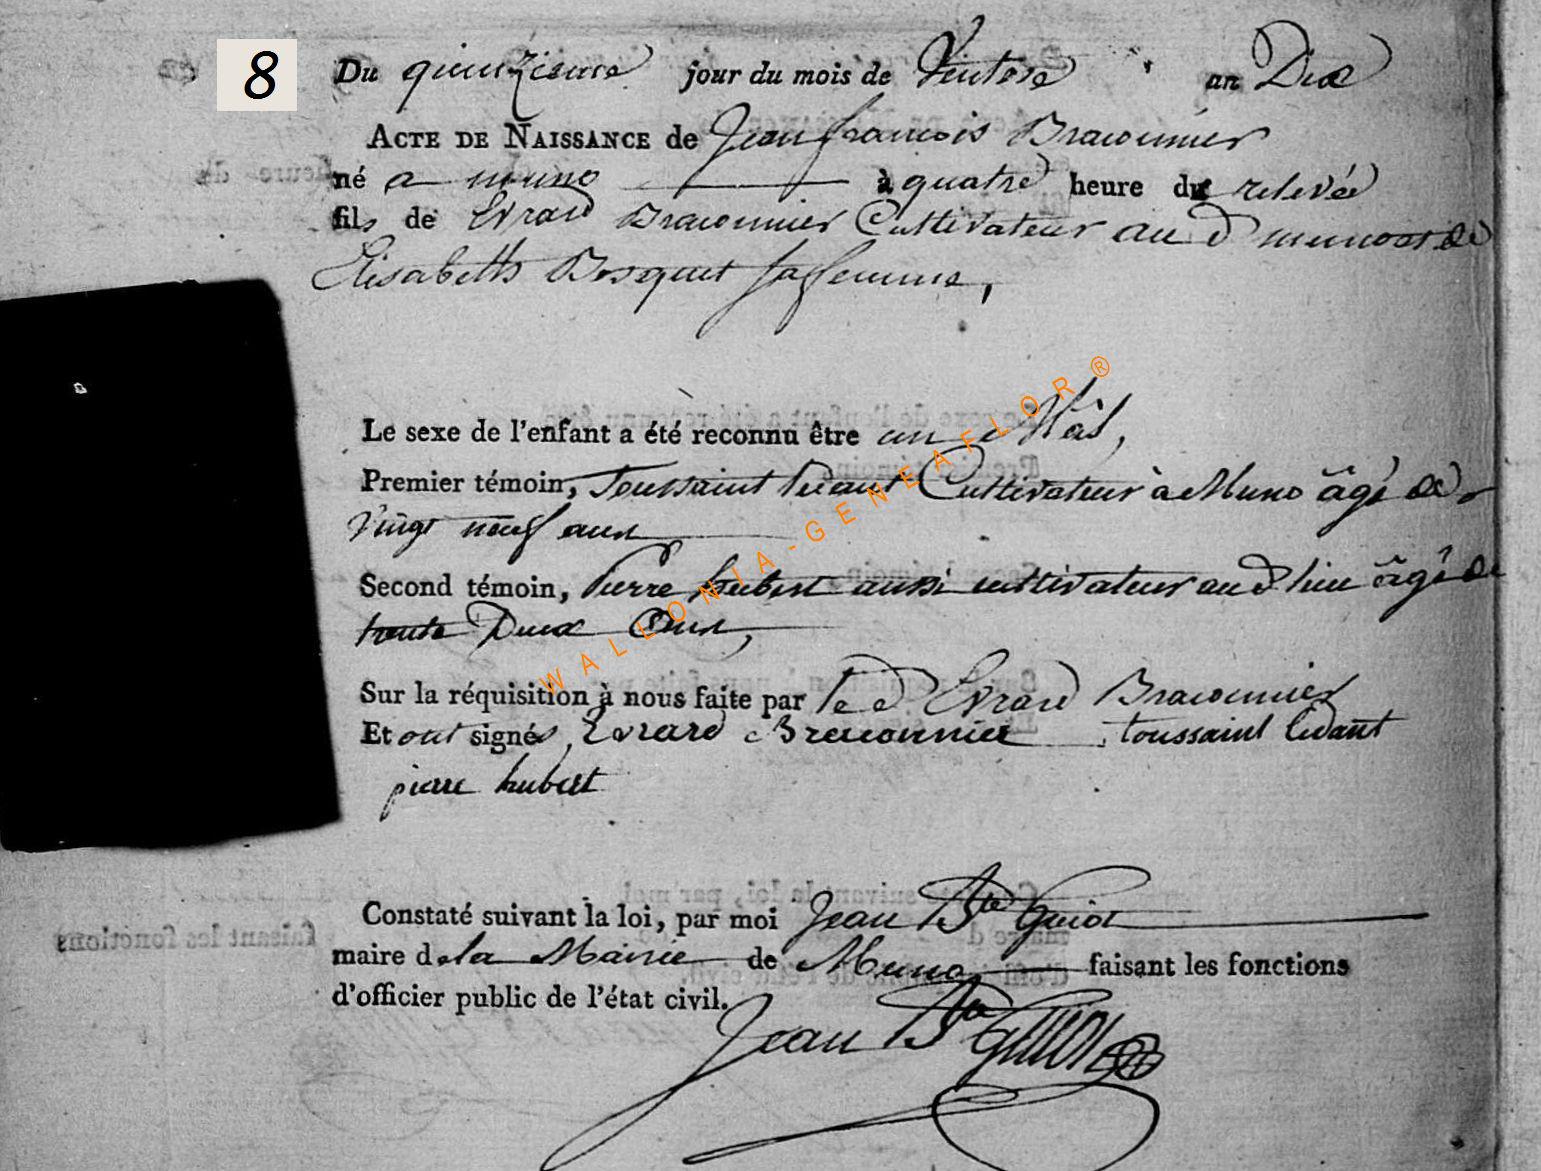 8
Du quinzieme jour du mois de Ventose an Dix
ACTE DE NAISSANCE de Jean francois Braconnier
né a muno à quatre heure du relevée
fils de Evrard Braconnier Cultivateur au d muno et de
Elisabeth Bosquet sa femme,
Le sexe de l'enfant a été reconnu être un Mâl,
Premier témoin, Toussaint Cultivateur à Muno âgé de
vingt neuf ans
Second témoin, Pierre hubert aussi cultivateur au d lieu âgé de
trente Deux Ans,
WALLONIA-GENEAFLOR®
Sur la réquisition à nous faite par le d Evrard Braconnier
Et ont signés, Evrard Braconnier toussaint
pierre hubert
Constaté suivant la loi, par moi Jean Bte Guiot
maire de la Mairie de Muno faisant les fonctions
d'officier public de l'état civil.
Jean Bte Guiot